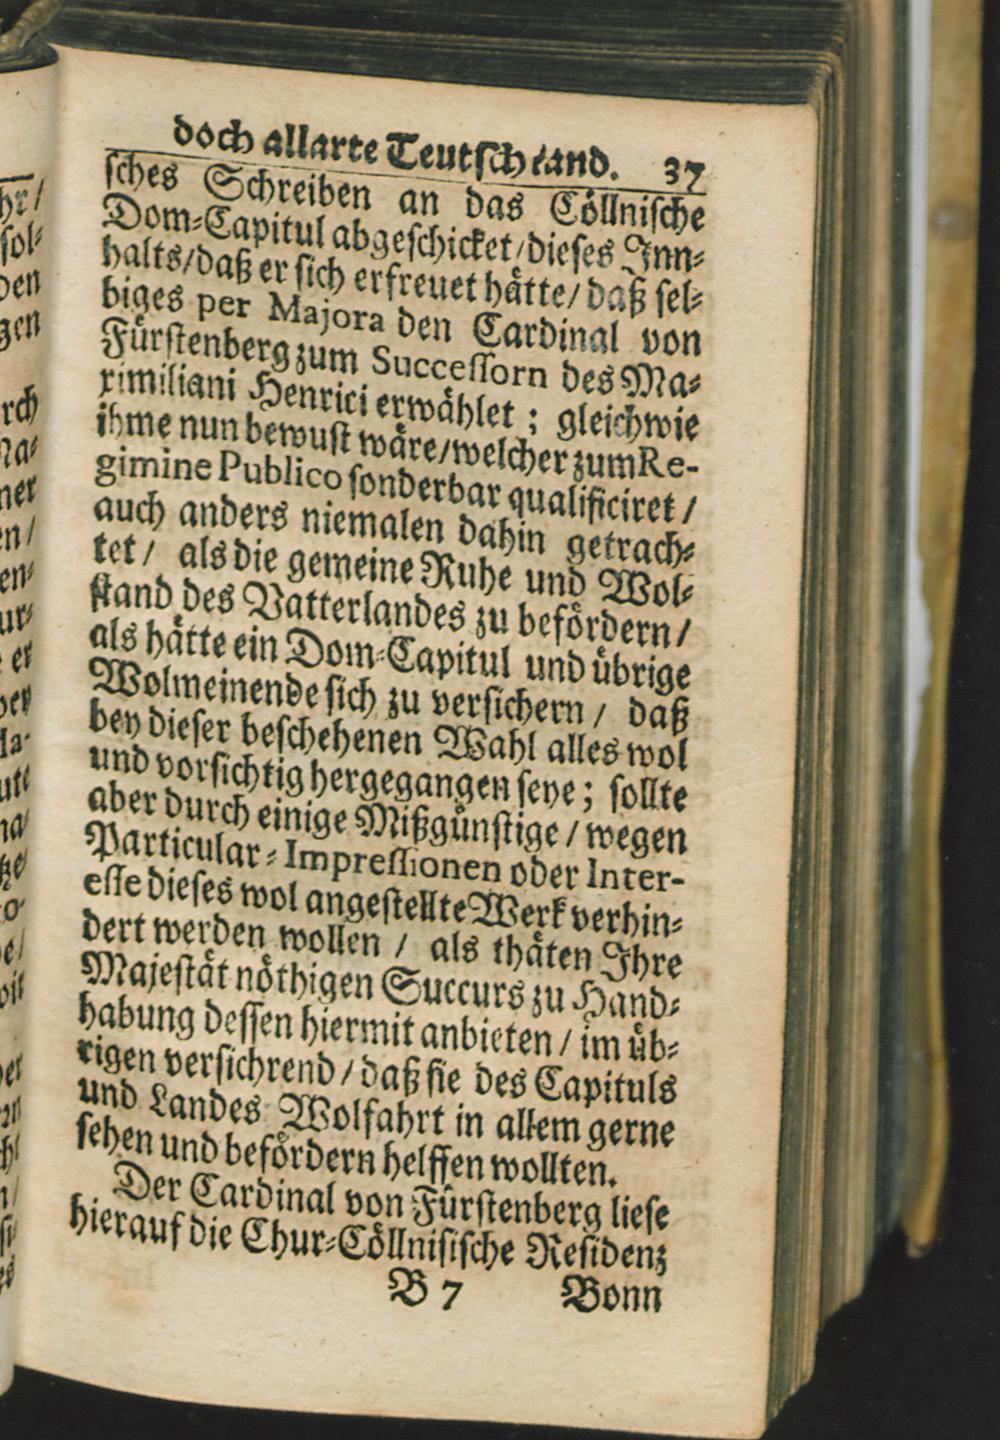 doch allarte Teutschland. 37
sches Schreiben an das Cöllnische
Dom-Capitul abgeschicket/dieses Inn-
halts/daß er sich erfreuet hätte/daß sel-
biges per Majora den Cardinal von
Fürstenberg zum Successorn des Ma-
ximiliani Henrici erwählet; gleichwie
ihme nun bewust wäre/welcher zum Re-
gimine Publico sonderbar qualificiret/
auch anders niemalen dahin getrach-
tet/ als die gemeine Ruhe und Wol-
stand des Vatterlandes zu befördern/
als hätte ein Dom-Capitul und übrige
Wolmeinende sich zu versichern/ daß
bey dieser beschehenen Wahl alles wol
und vorsichtig hergegangen seye; sollte
aber durch einige Mißgünstige/wegen
Particular-Impressionen oder Inter-
esse dieses wol angestellte Werk verhin-
dert werden wollen/ als thäten Ihre
Majestät nöthigen Succurs zu Hand-
habung dessen hiermit anbieten/im üb-
rigen versichrend/daß sie des Capituls
und Landes Wolfahrt in allem gerne
sehen und befördern helffen wollten.
Der Cardinal von Fürstenberg liese
hierauf die Chur-Cöllnisische Residenz
B 7 Bonn